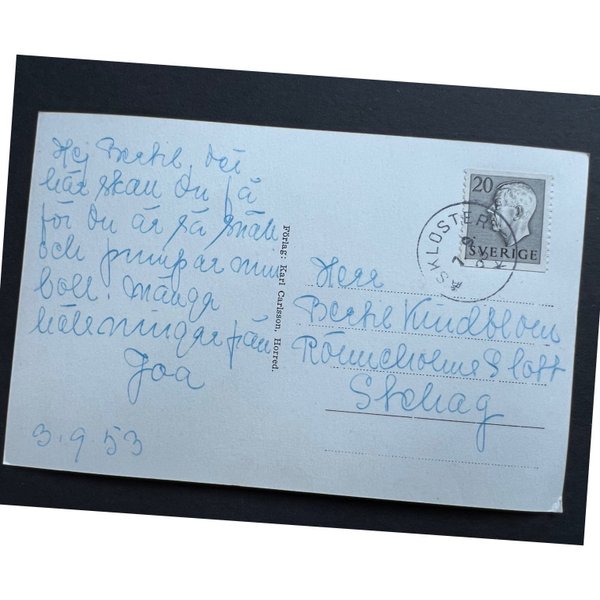 Hej Bertil, det
här skall du få
för du är så snäll
och pumpar min
boll. Många
hälsningar från
Joa
3.9 53
Förlag: Karl Carlsson, Horred.
20
SVERIGE
SKLOSTER
Herr
Bertil Lindblom
Rönneholms Slott
Stehag